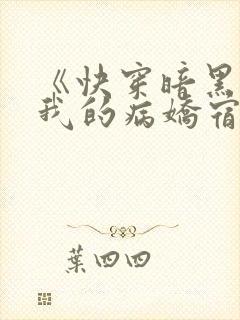 《快穿暗黑
我的病嬌宿
葉四四